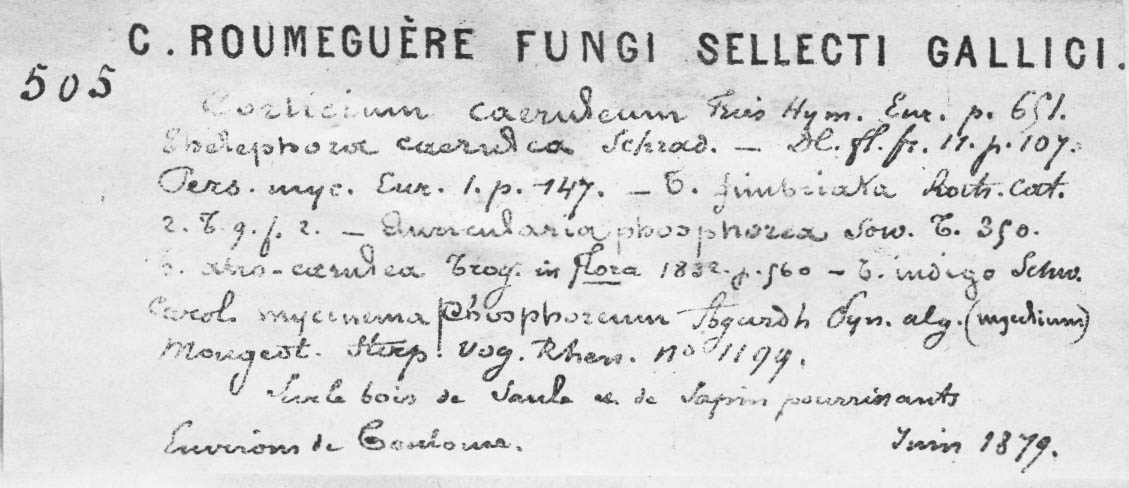 C. ROUMEGUÈRE FUNGI SELLECTI GALLICI.
505
Corticium caeruleum Fries Hym. Eur. p. 651.
Thelephora caerulea Schrad. — DC. fl. fr. 11. p. 107.
Pers. myc. Eur. 1. p. 147. — T. fimbriata Roth. Cat.
2. T. 9. f. 2. — Auricularia phosphorea Sow. T. 350.
T. atro-caerulea Trog. in flora 1832. p. 560 — T. indigo Schw.
Carol. mycinema phosphoreum Agardh Syn. alg. (mycelium)
Mougeot. Stirp. Vog. Rhen. no 1194.
Sur le bois de Saule et de Sapin pourrissants
Environs de Toulouse. Juin 1879.